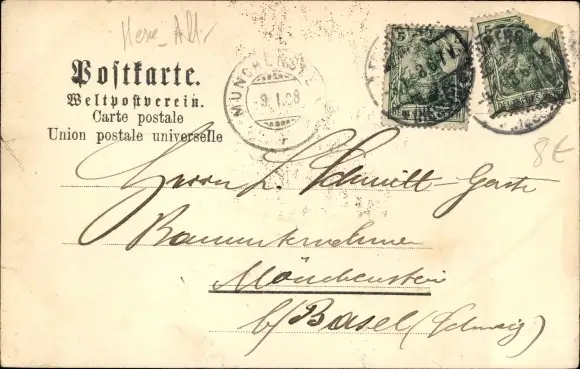 Postkarte.
Weltpostverein.
Carte postale
Union postale universelle
MÜNCHENST
9.I.08
8€
Herrn L. Schmitt-Garte
Bauunternehmer
Mönchenstein
b/Basel (Schweiz)